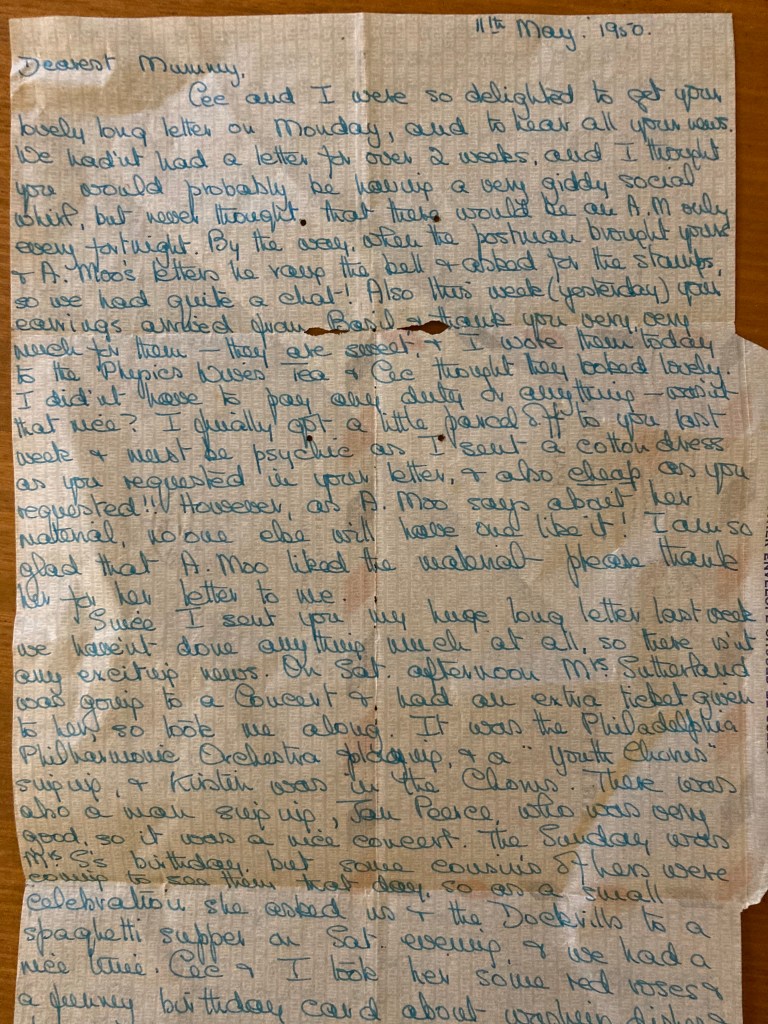 11th May. 1950.
Dearest Mummy,
Cec and I were so delighted to get your
lovely long letter on Monday, and to hear all your news.
We had'nt had a letter for over 2 weeks, and I thought
you would probably be having a very giddy social
whirl, but never thought, that there would be an A.M only
every fortnight. By the way, when the postman brought yours
& A. Moo's letters he rang the bell & asked for the stamps,
so we had quite a chat! Also this week (yesterday) your
earrings arrived from Basil & thank you very, very
much for them – they are sweet, & I wore them today
to the Physics Wives Tea & Cec thought they looked lovely.
I did'nt have to pay any duty or anything – was'nt
that nice? I finally got a little parcel off to you last
week & must be psychic as I sent a cotton dress
as you requested in your letter, & also cheap as you
requested!! However, as A. Moo says about her
material, no one else will have one like it! I am so
glad that A. Moo liked the material – please thank
her for her letter to me.
Since I sent you my huge long letter last week
we have'nt done anything much at all, so there is'nt
any exciting news. On Sat. afternoon Mrs Sutherland
was going to a Concert & had an extra ticket given
to her, so took me along. It was the Philadelphia
Philharmonic Orchestra playing, & a "Youth Chorus"
singing, & Kirstin was in the Chorus. There was
also a man singing, Jan Peerce, who was very
good, so it was a nice concert. The Sunday was
Mrs S's birthday, but some cousins of hers were
coming to see them that day, so as a small
celebration she asked us & the Dockrills to a
spaghetti supper on Sat. evening, & we had a
nice time. Cec & I took her some red roses &
a funny birthday card about washing dishes